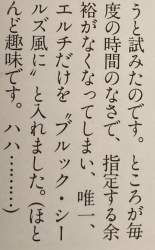 うと試みたのです。ところが毎
度の時間のなさで、指定する余
裕がなくなってしまい、唯一、
エルチだけを〝ブルック・シー
ルズ風に〟と入れました。(ほと
んど趣味です。ハハ………)